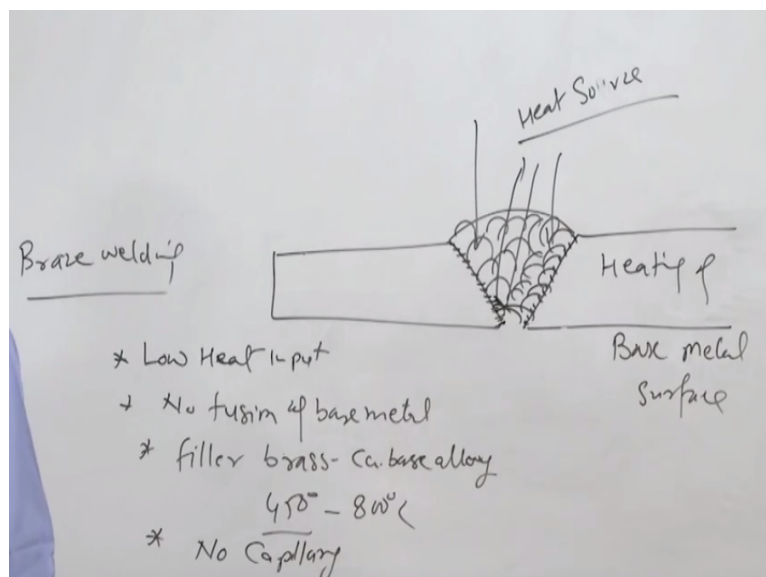 Heat Source
Braze welding
Heating of
Base metal
Surface
* Low Heat Input
* No fusion of base metal
* filler brass - Cu. base alloy
450° - 800°C
* No Capllary